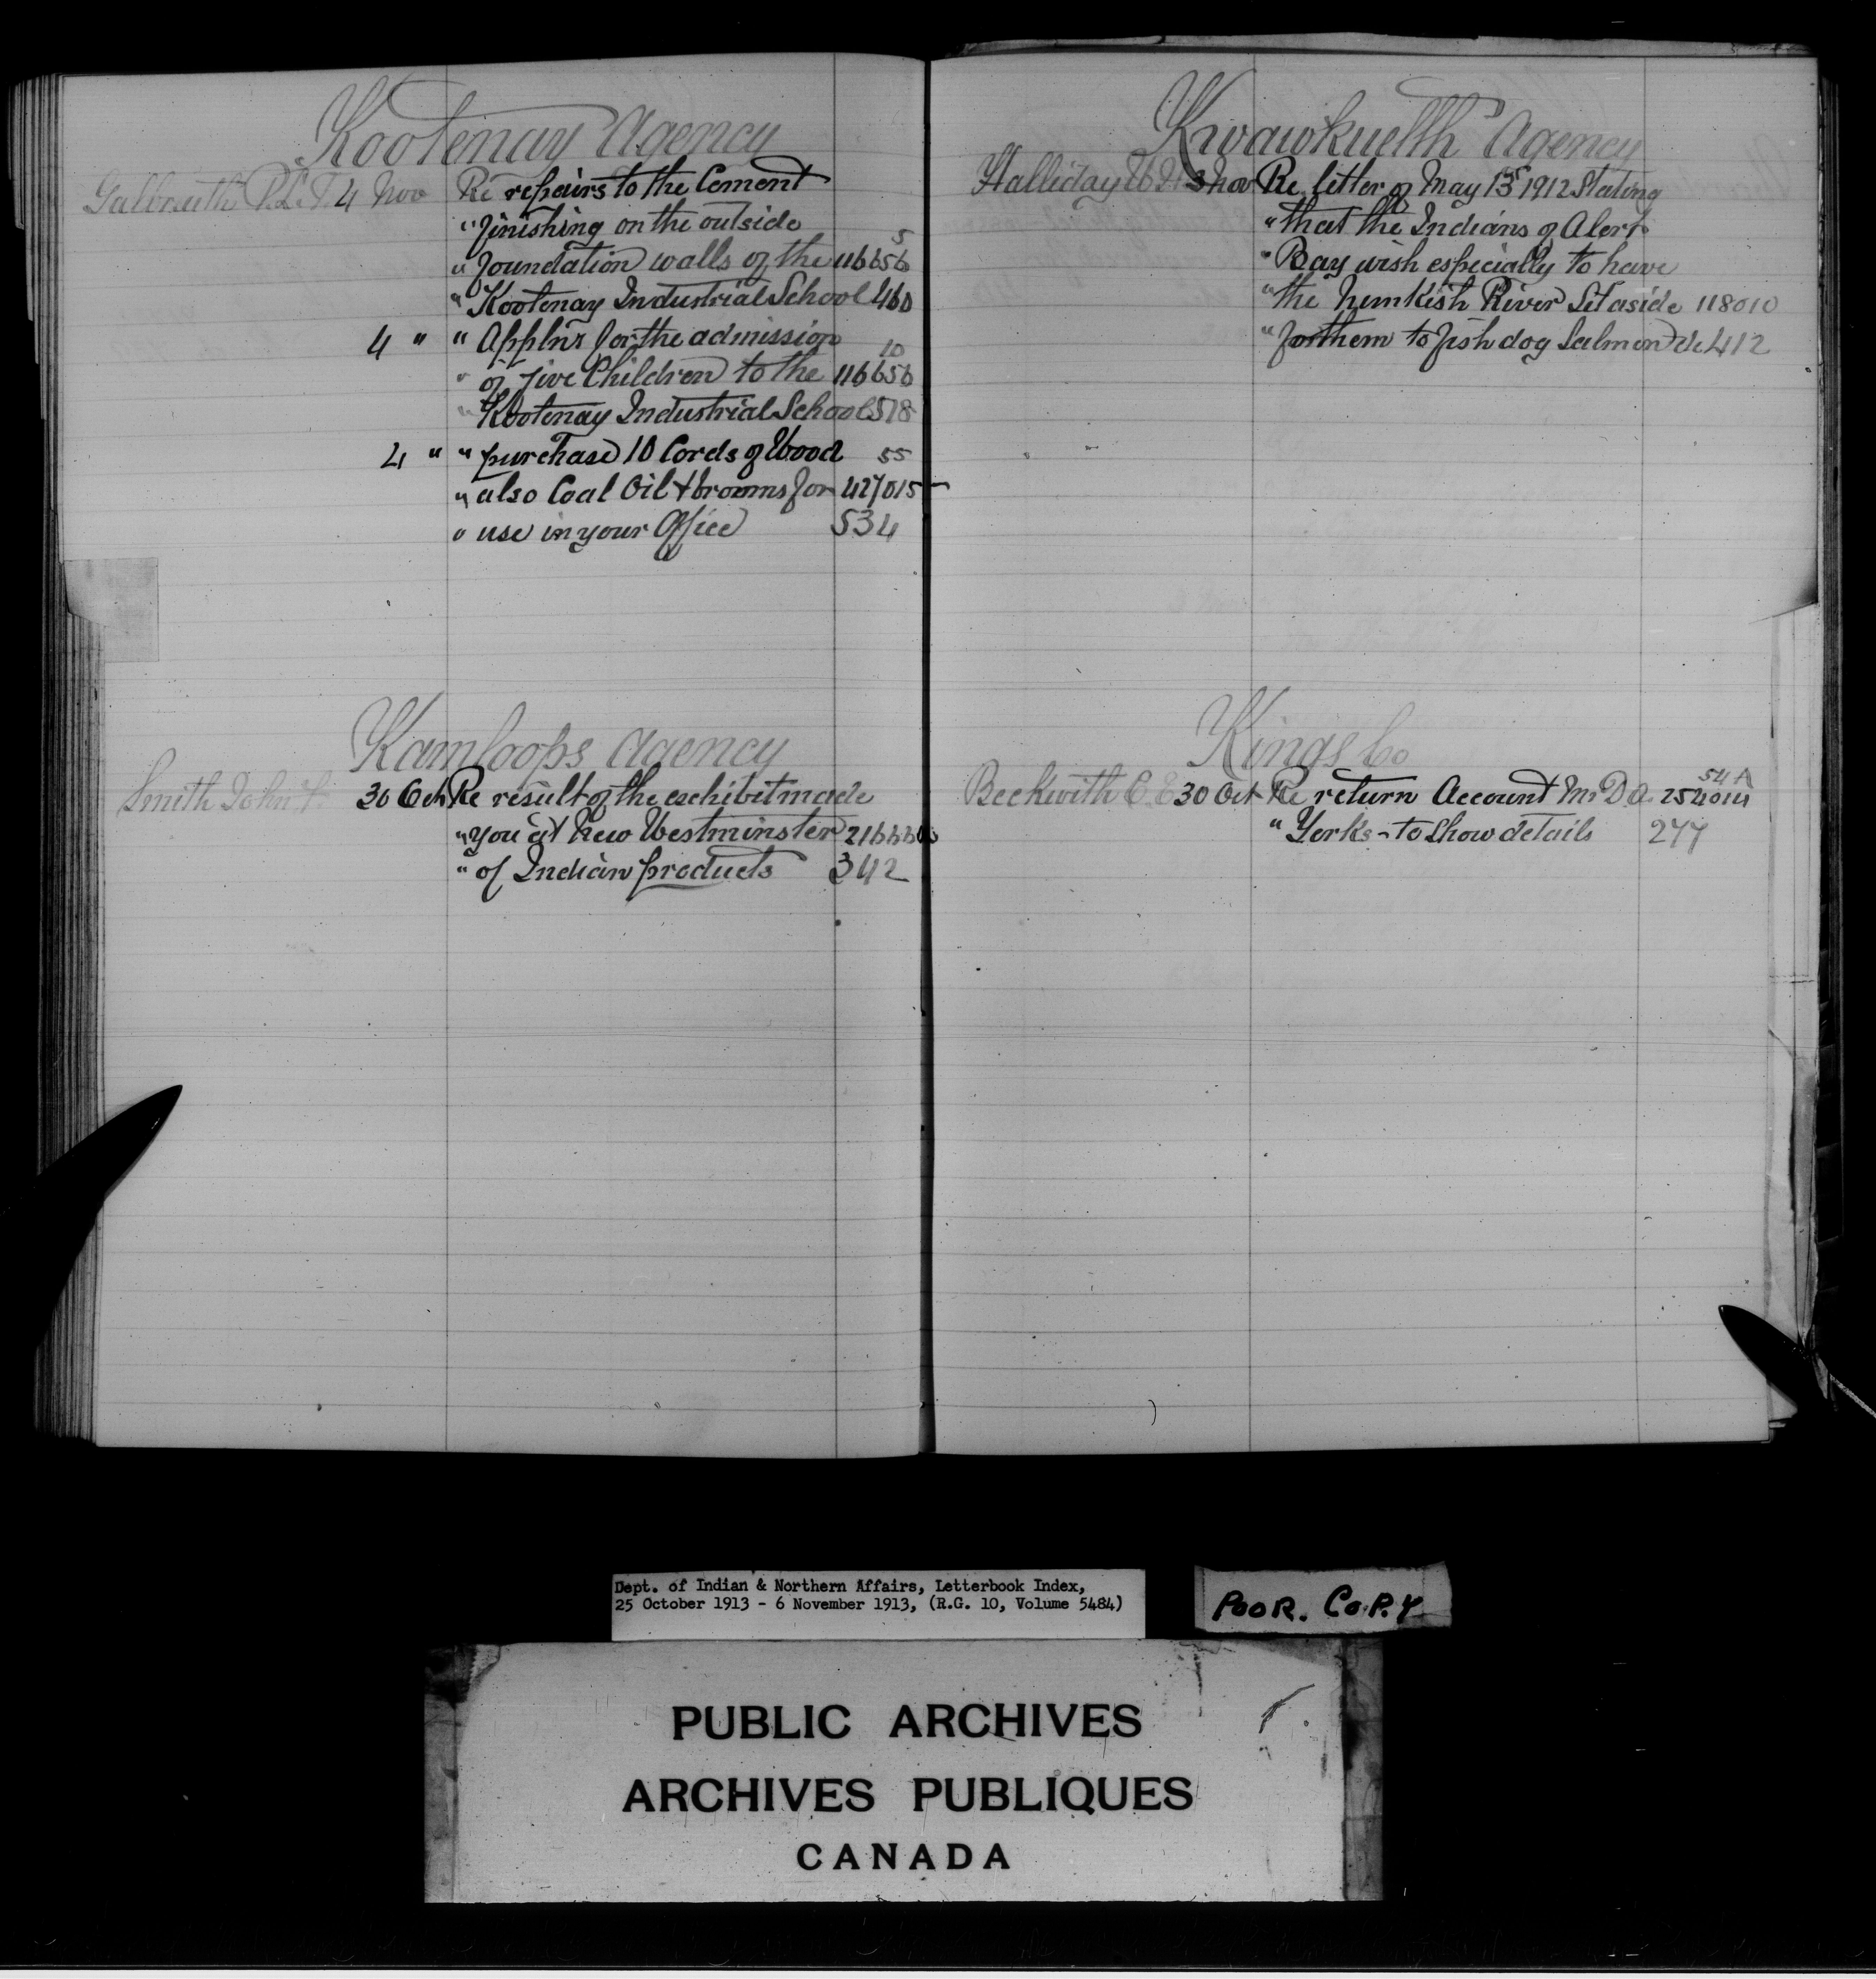 Kootenay Agency
Galbraith R.L.T. 4 Nov Re repairs to the Cement
" finishing on the outside
5
" foundation walls of the 116656
" Kootenay Industrial School 460
4 " " Applns for the admission
10
" of five Children to the 116656
" Kootenay Industrial School 518
4 " " purchase 10 Cords of Wood 55
" also Coal Oil & brooms for 427015
" use in your Office 534
Kamloops Agency
Smith John F. 30 Oct Re result of the exhibit made
" you at New Westminster
" of Indian products 342
Kwawkuelth Agency
Halliday W. 3 Nov Re letter of May 13 1912 Stating
" that the Indians of Alert
" Bay wish especially to have
" the Nimkish River Set aside 118010
" for them to fish dog Salmon &c 412
Kings Co
54 A
Beckwith C E 30 Oct Re return Account Mr D.A. 254014
" Yorks - to show details 277
Dept. of Indian & Northern Affairs, Letterbook Index,
25 October 1913 - 6 November 1913, (R.G. 10, Volume 5484)
POOR. COPY
PUBLIC ARCHIVES
ARCHIVES PUBLIQUES
CANADA